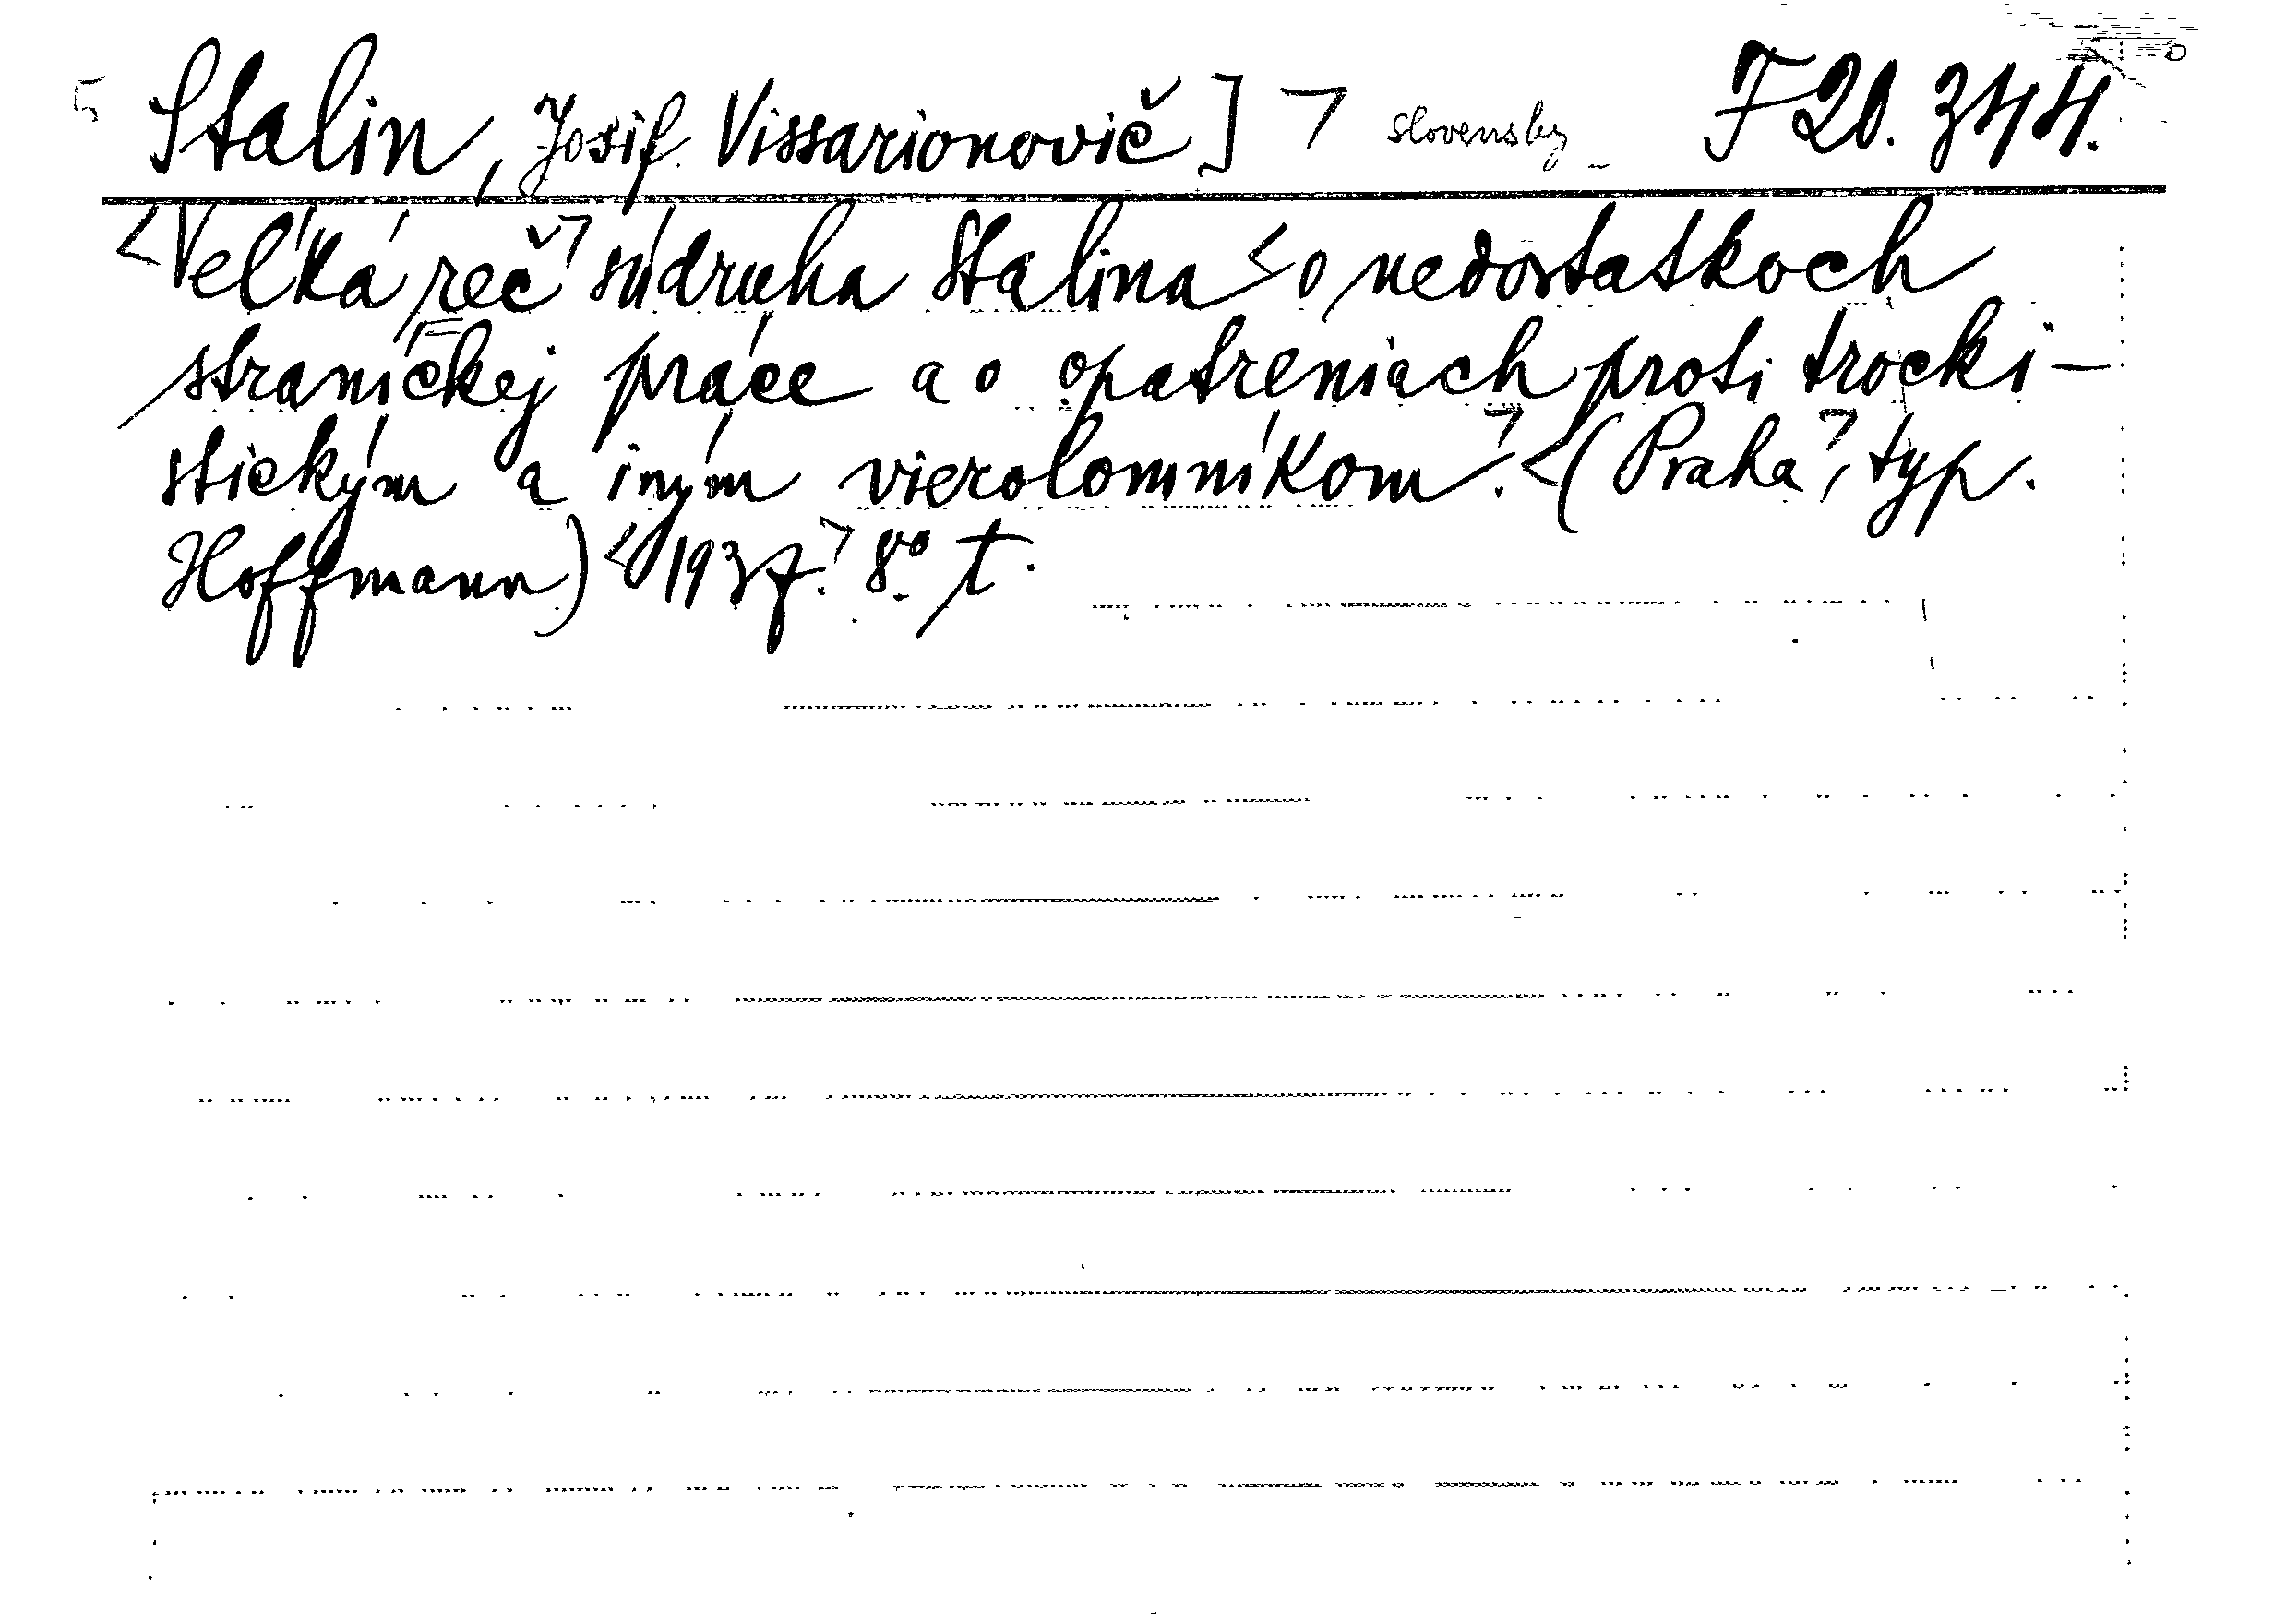 Stalin, Josif Vissarionovič] > slovensky F 20.344.
<Veľká reč> súdruha Stalina <o nedostatkoch
straníckej práce a o opatreniach proti trocki-
stickým a iným vierolomníkom.> <(Praha>, typ.
Hoffmann) <1937.> 8° t.